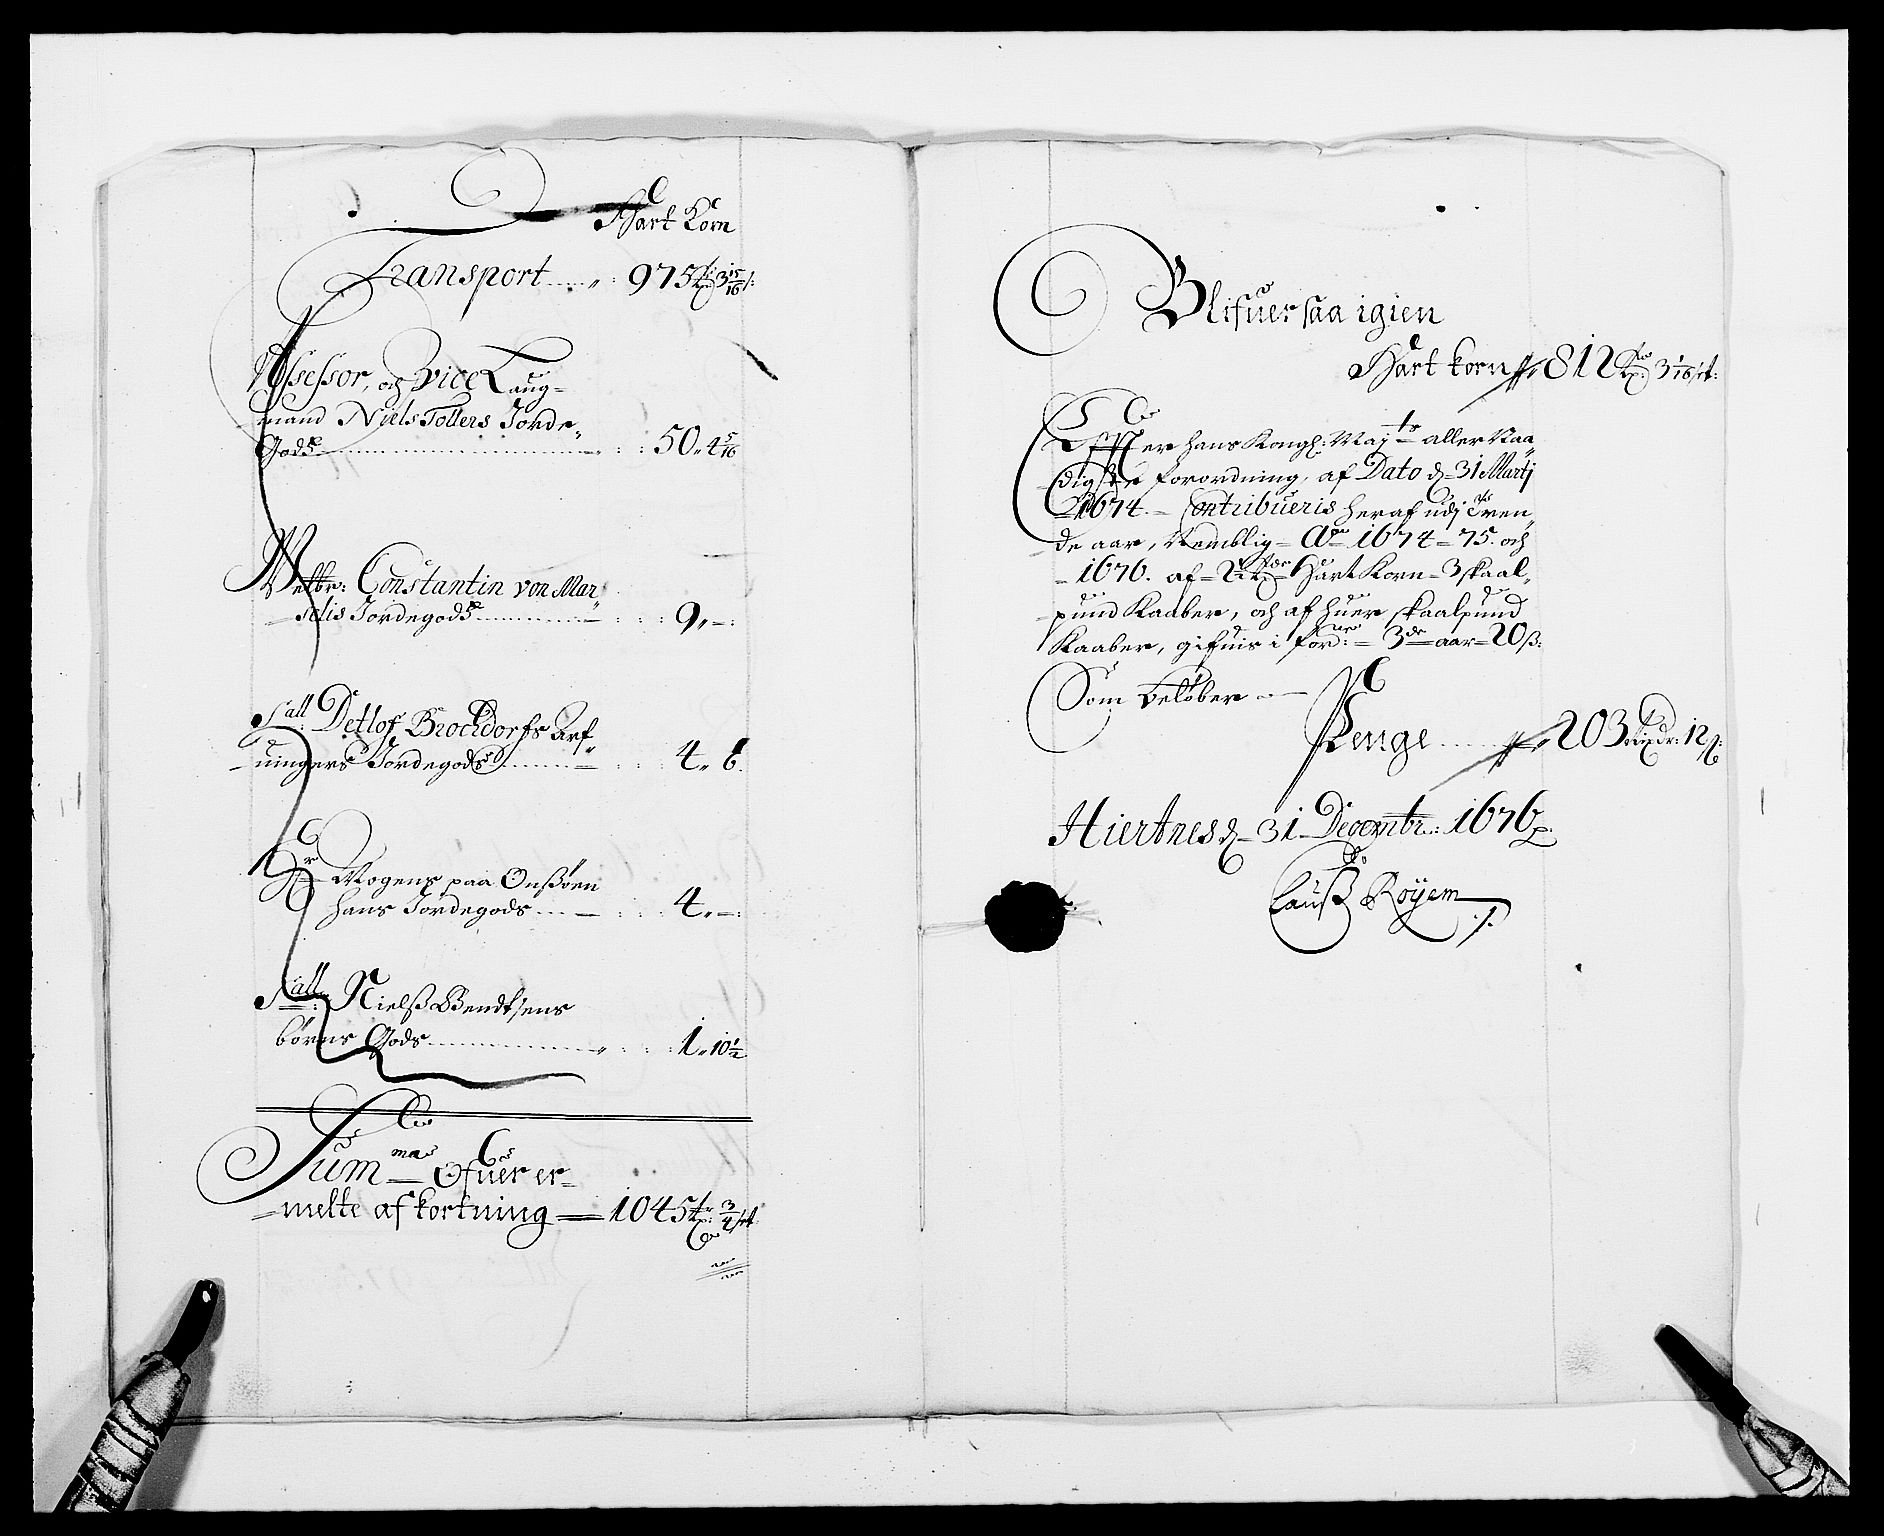 Hart Korn
Transport 975 tr: 3 15/16 s:
Assessor, och Vice Laug-
mand Niels Tollers Jorde,,
Godz 50,, 4 5/16
Welbr: Constantin von Mar,,
selis Jordegodz 9,, -:
Sall: Detlof Brochdorfs Arf,,
uingers Jordegods 4,, 6.
Hr Mogens paa Onsøen
hans Jordegods 4,, -:
Sall: Nielß Bendtsens
børns Gods 1,, 10 1/2
Summa Ofuer er-
melte afkortning 1045 tr: 3/4 set
Blifuer saa igien
Hart korn 812 3 1/16 set:
Effter hans Kongl: Mayts aller Naa,,
digste forordning, af Dato d 31 Martj
1674. Contribueris heraf udj Tren,,
de aar, Nemblig Ao 1674 - 75. och
1676. af Hart Korn 3 skaal,,
pund Kaaber, och af huer skaalpund
Kaaber, gifuis i for: 3de aar 20 ß:
Som beløber
Penge 203 Rixdr: 12 ß:
Hiertnes d 31 Decembr: 1676
Lauß Røyem